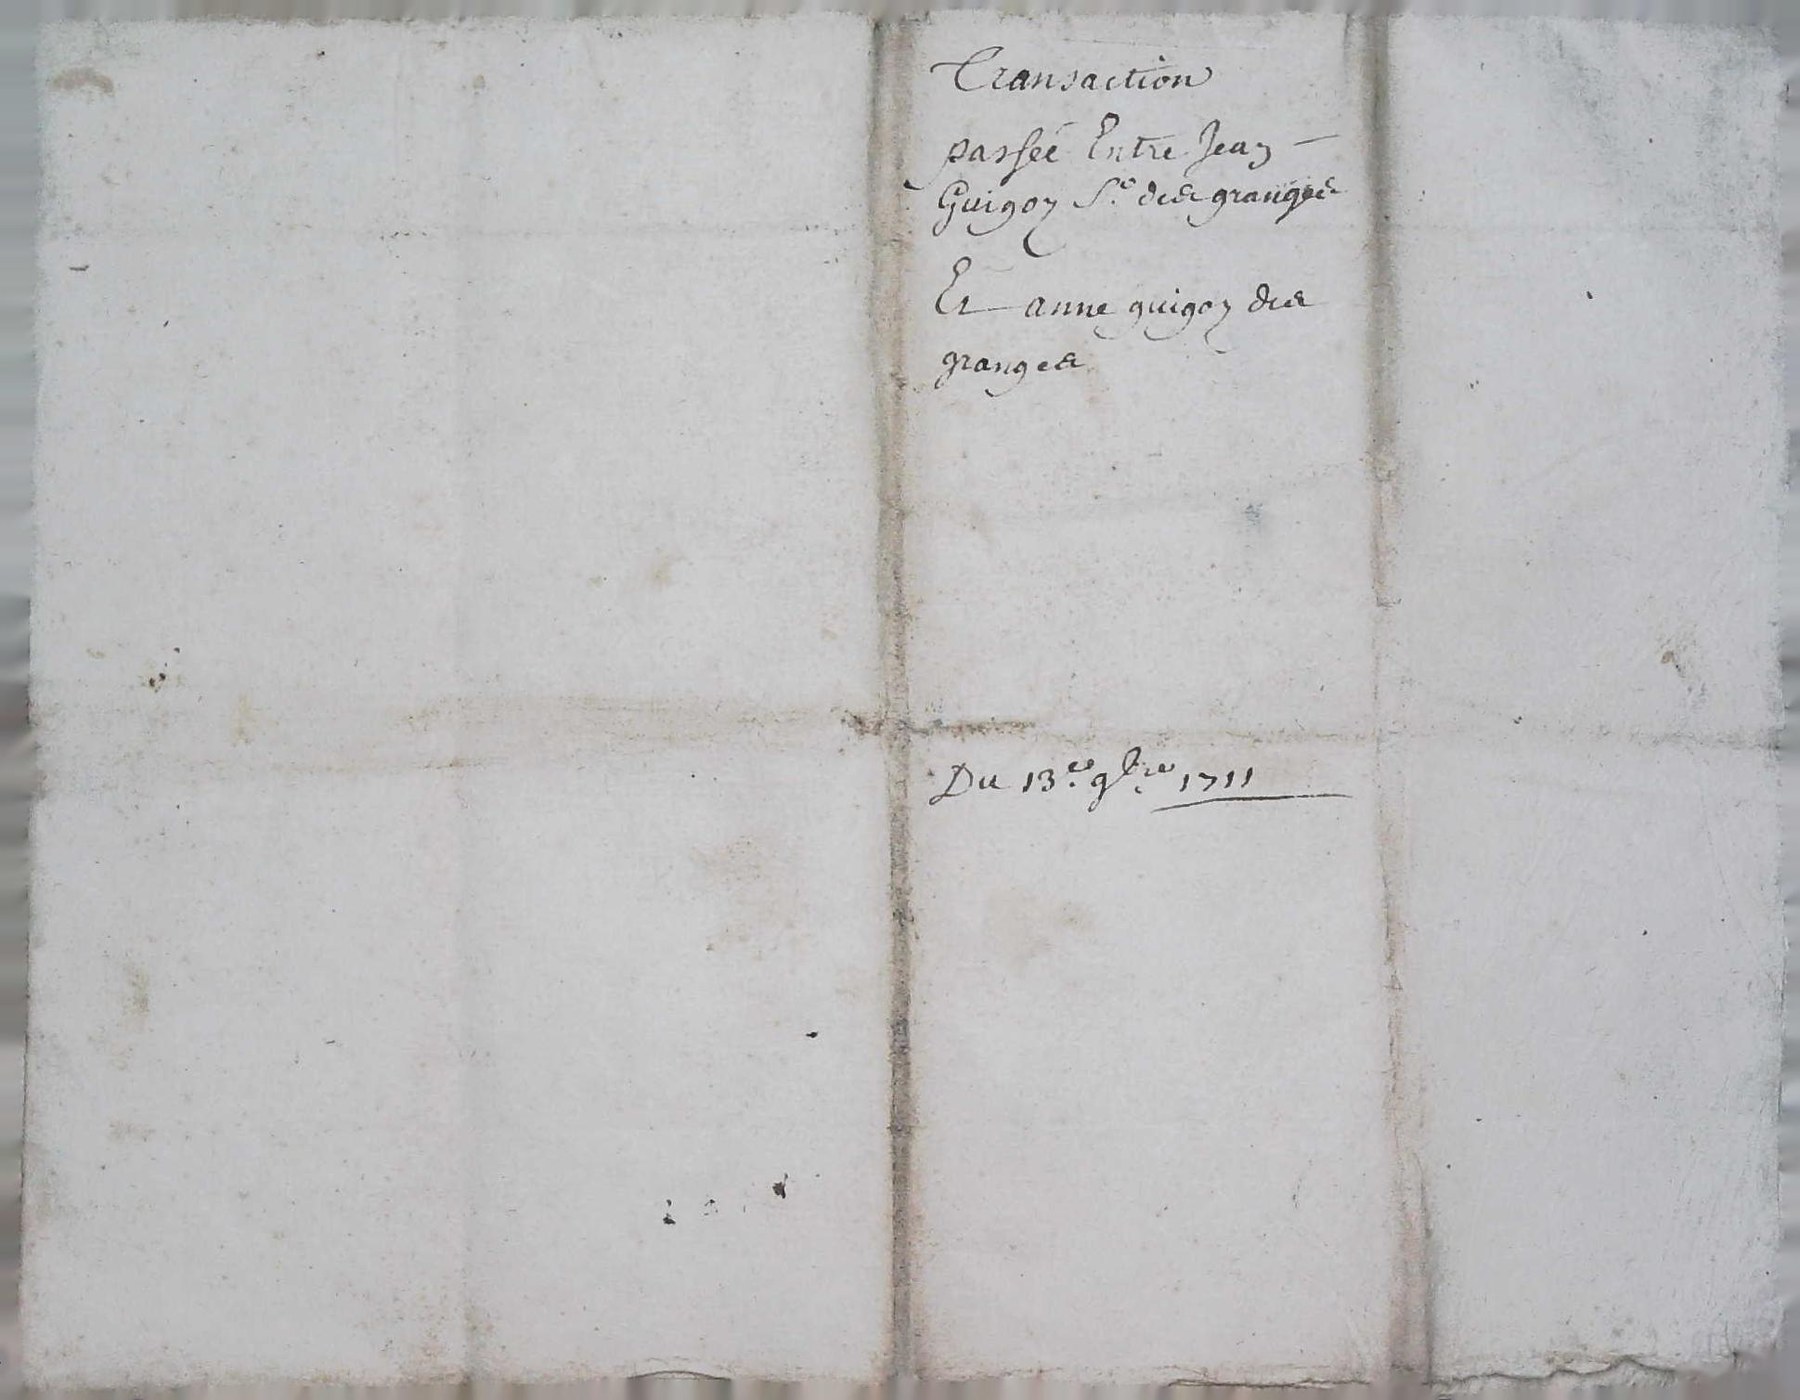 Transaction
passée Entre Jean
Guigon Sr. des granges
Et anne guigon des
granges
Du 13.e 9bre 1711